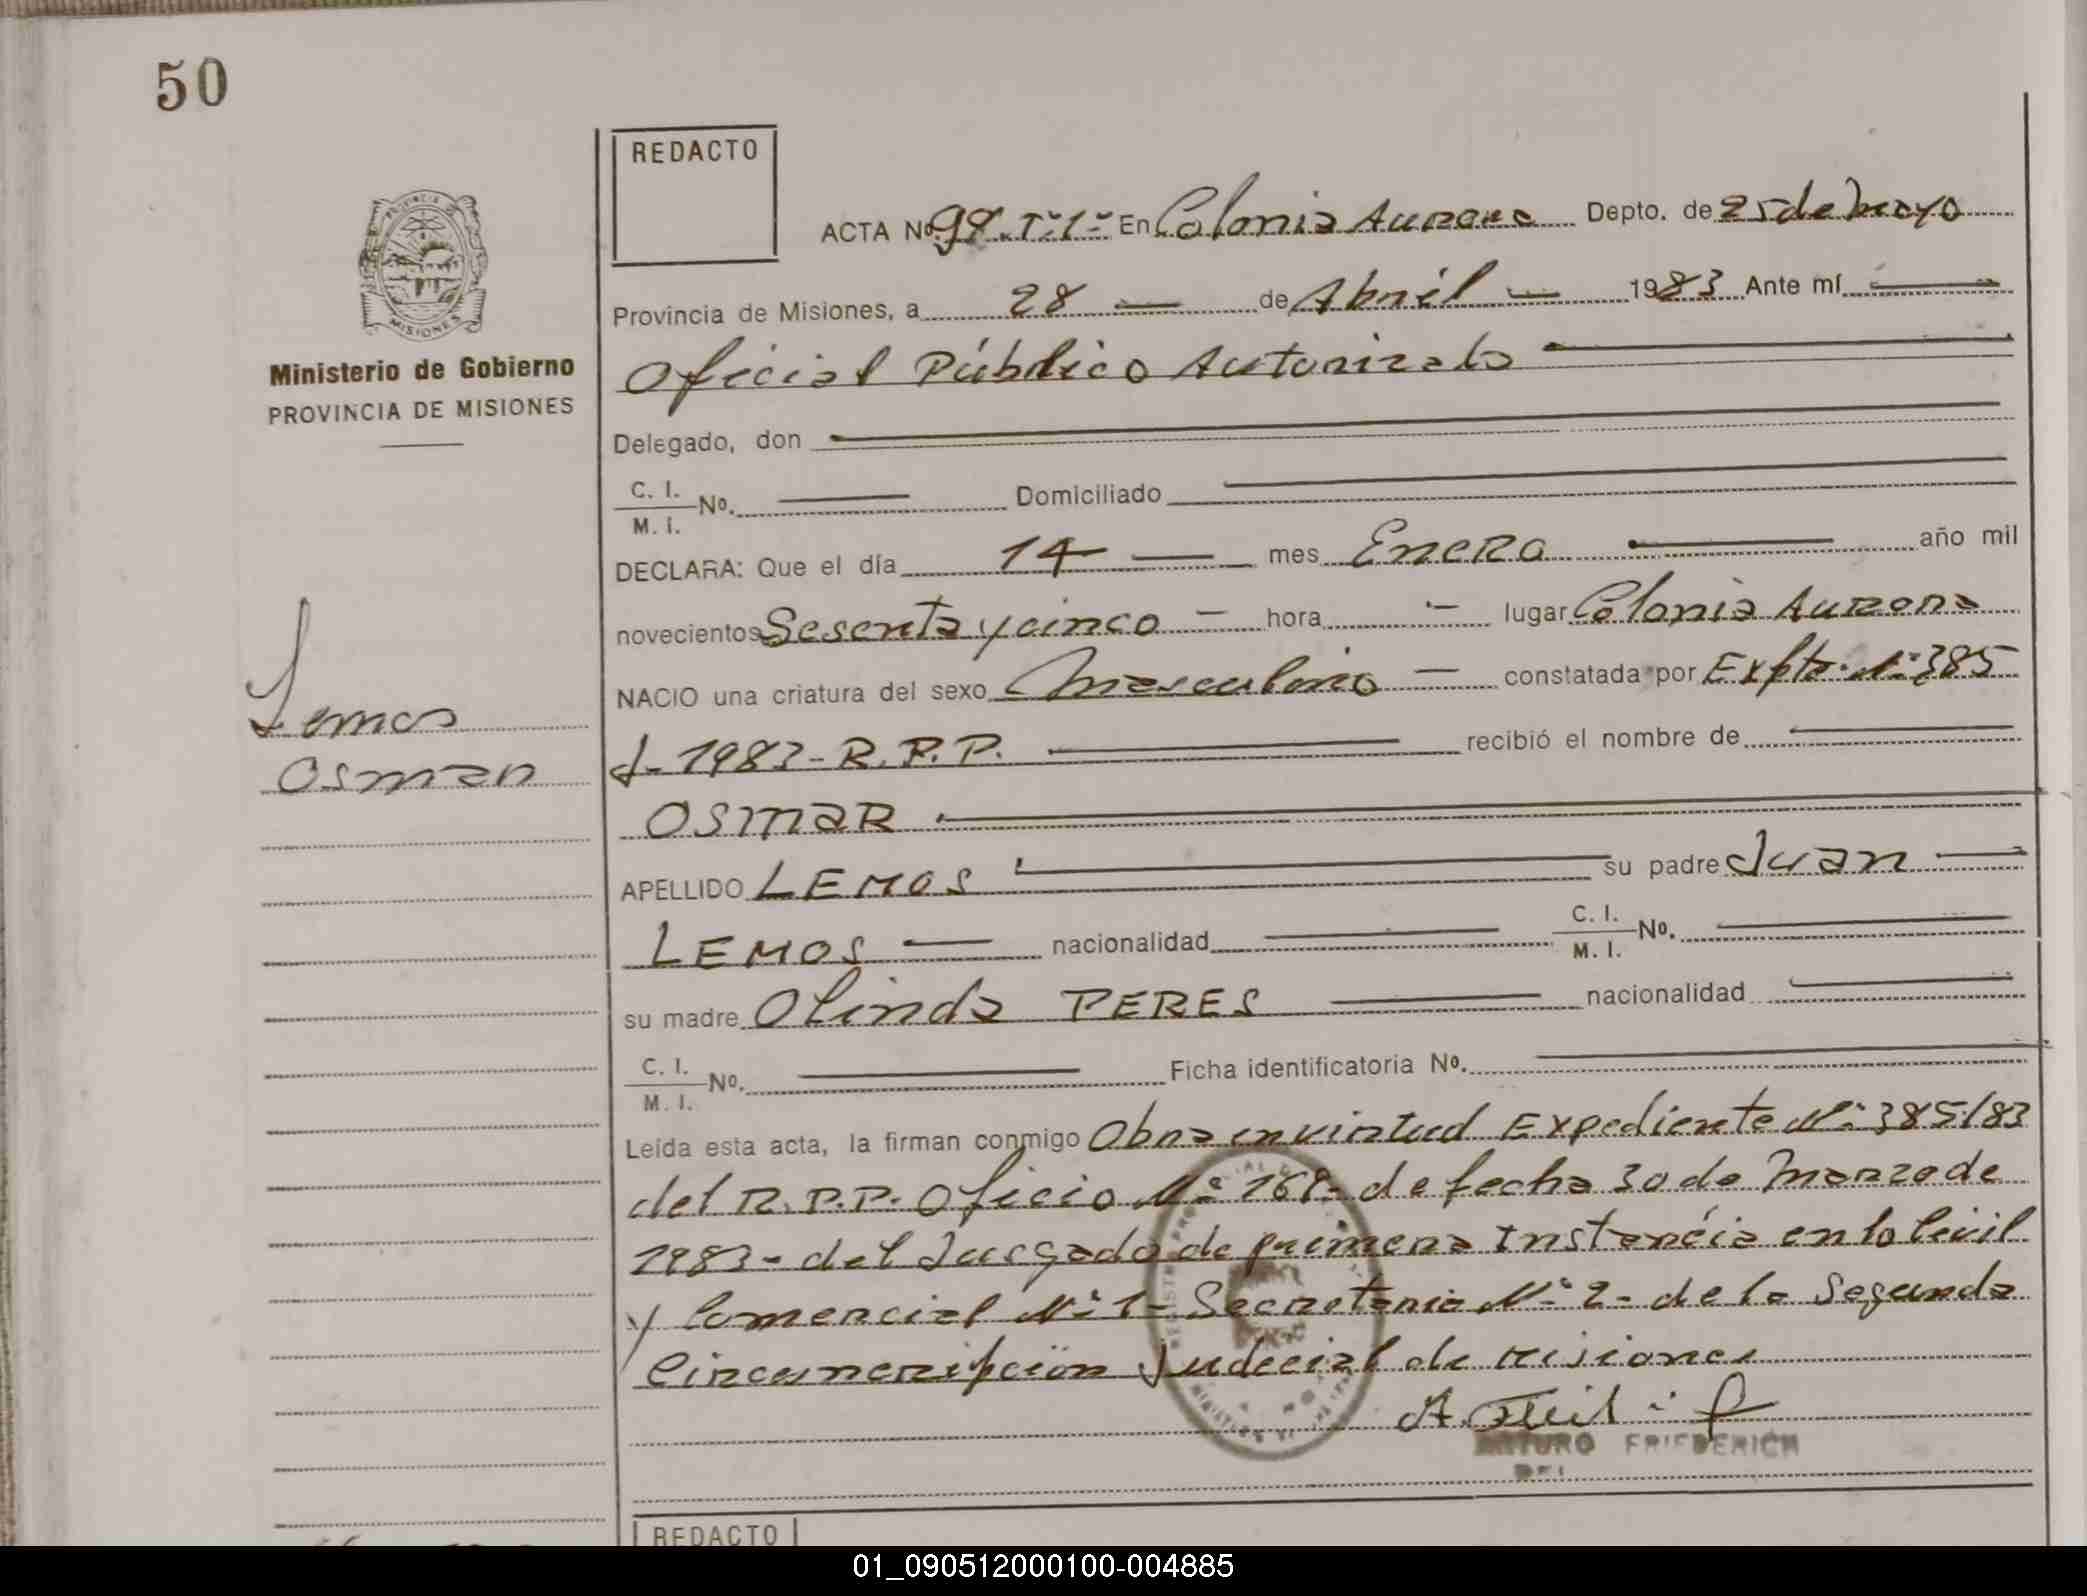 50
REDACTO
ACTA Nº 98 Tº 1º En Colonia Aurora Depto. de 25 de Mayo
Provincia de Misiones, a 28 de Abril 1983 Ante mí
Oficial Público Autorizado
Ministerio de Gobierno
PROVINCIA DE MISIONES
Delegado, don
C. I. Nº. Domiciliado
M. I.
DECLARA: Que el día 14 mes Enero año mil
novecientos Sesenta y cinco hora lugar Colonia Aurora
NACIO una criatura del sexo Masculino constatada por Expte. Nº 385
Lemos
Osmar
1983 - R.P.P. recibió el nombre de
OSMAR
APELLIDO LEMOS su padre Juan
LEMOS nacionalidad C. I. Nº.
M. I.
su madre Olinda PERES nacionalidad
C. I. Nº. Ficha identificatoria Nº.
M. I.
Leída esta acta, la firman conmigo Obra en virtud Expediente Nº 385/83
del R.P.P. Oficio Nº 168 - de fecha 30 de Marzo de
1983 - del Jusgado de primera Instancia en lo Civil
y Comercial Nº 1 - Secretaria Nº 2 - de la Segunda
Circunscripción Judicial de Misiones
ARTURO FRIEDERICH
REDACTO
01_090512000100-004885